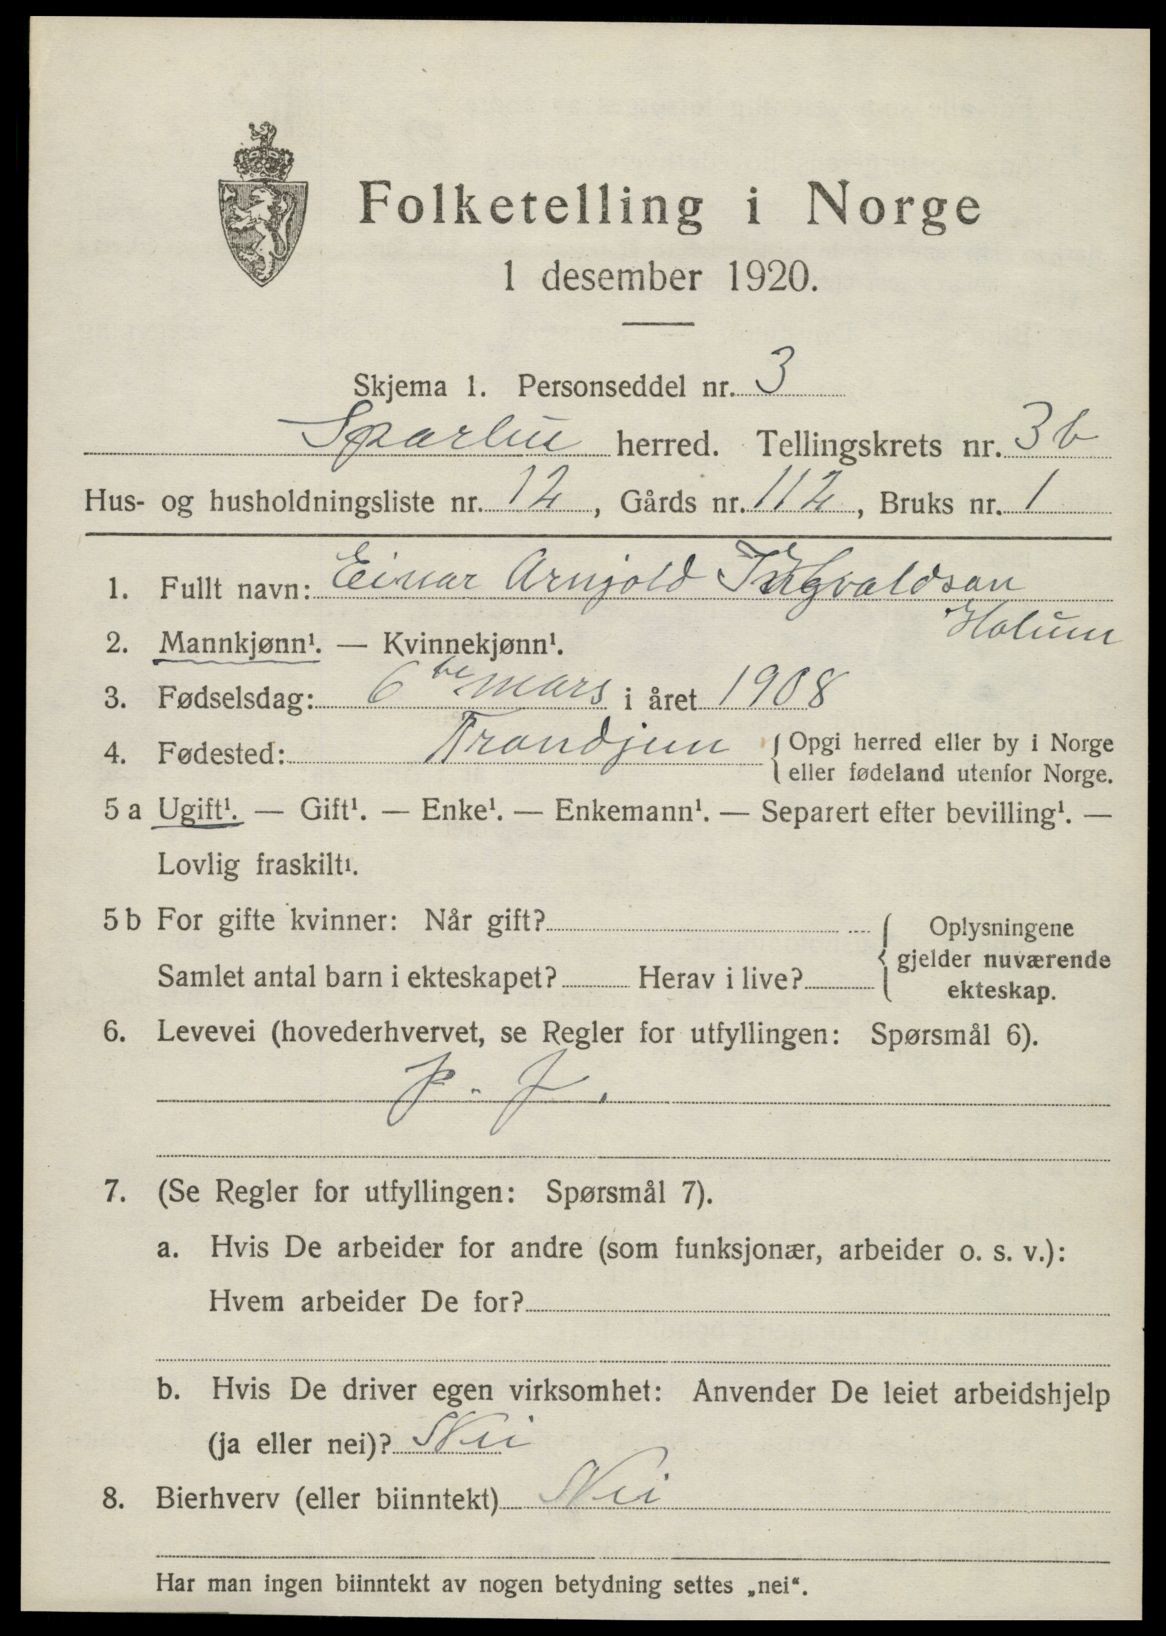 Folketelling i Norge
1 desember 1920.
Skjema 1. Personseddel nr. 3
Sparbu herred. Tellingskrets nr. 3b
Hus- og husholdningsliste nr. 12, Gårds nr. 112, Bruks nr. 1
1. Fullt navn: Einar Arnjold Ingvaldsan
Holum
2. Mannkjønn¹. — Kvinnekjønn¹.
3. Fødselsdag: 6te mars i året 1908
4. Fødested: Trondjem { Opgi herred eller by i Norge
eller fødeland utenfor Norge.
5 a Ugift¹. — Gift¹. — Enke¹. — Enkemann¹. — Separert efter bevilling¹. —
Lovlig fraskilt¹.
5 b For gifte kvinner: Når gift? { Oplysningene
gjelder nuværende
Samlet antal barn i ekteskapet? Herav i live?
ekteskap.
6. Levevei (hovederhvervet, se Regler for utfyllingen: Spørsmål 6).
7. (Se Regler for utfyllingen: Spørsmål 7).
a. Hvis De arbeider for andre (som funksjonær, arbeider o. s. v.):
Hvem arbeider De for?
b. Hvis De driver egen virksomhet: Anvender De leiet arbeidshjelp
(ja eller nei)? Nei
8. Bierhverv (eller biinntekt) Nei
Har man ingen biinntekt av nogen betydning settes „nei“.